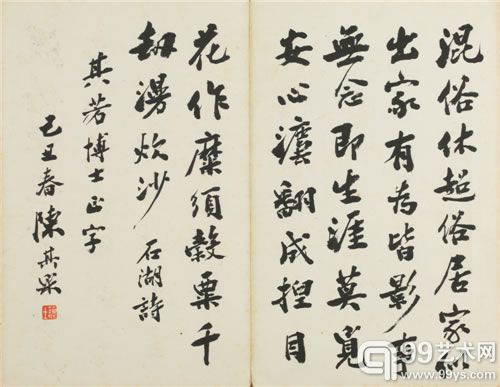 混俗休超俗居家似
出家有為皆影事
無念即生涯莫覓
安心處翻成捏目
花作糜須穀粟千
劫漫炊沙 石湖詩
其芳博士正字
己丑春陳其采
99艺术网
www.99ys.com